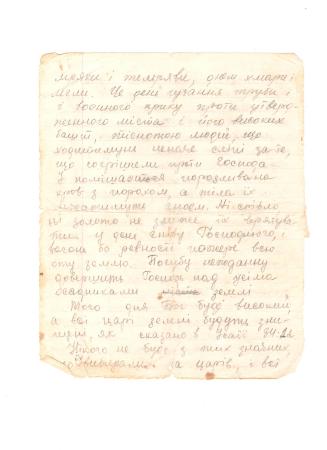 мряки і темряви, днем хмари і
мели. Це день гукання труби і
і воєнного крику проти утвер-
дженного міста і його високих
башт, тіснотою людей, що
ходитимуть неначе сліпі за те,
що согрішили проти Господа
й
кров з порохом, а тіла їх
гноєм. Ні срібло
ні золото не зможе їх врятув
ти у день гніву Господнього, і
вогонь бо ревності пожере всю
оту землю. Погубу неждану
довершить Господь над усіма
осадниками землі
Того дня Бог буде високий,
а всі царі землі будуть
як сказано в Ісаії 24-21
Нікого не буде з тих значних,
за царів, і всі